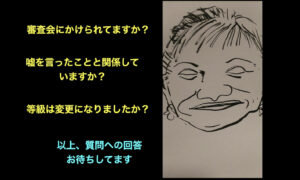 審査会にかけられてますか？
嘘を言ったことと関係して
いますか？
等級は変更になりましたか？
以上、質問への回答
お待ちしてます